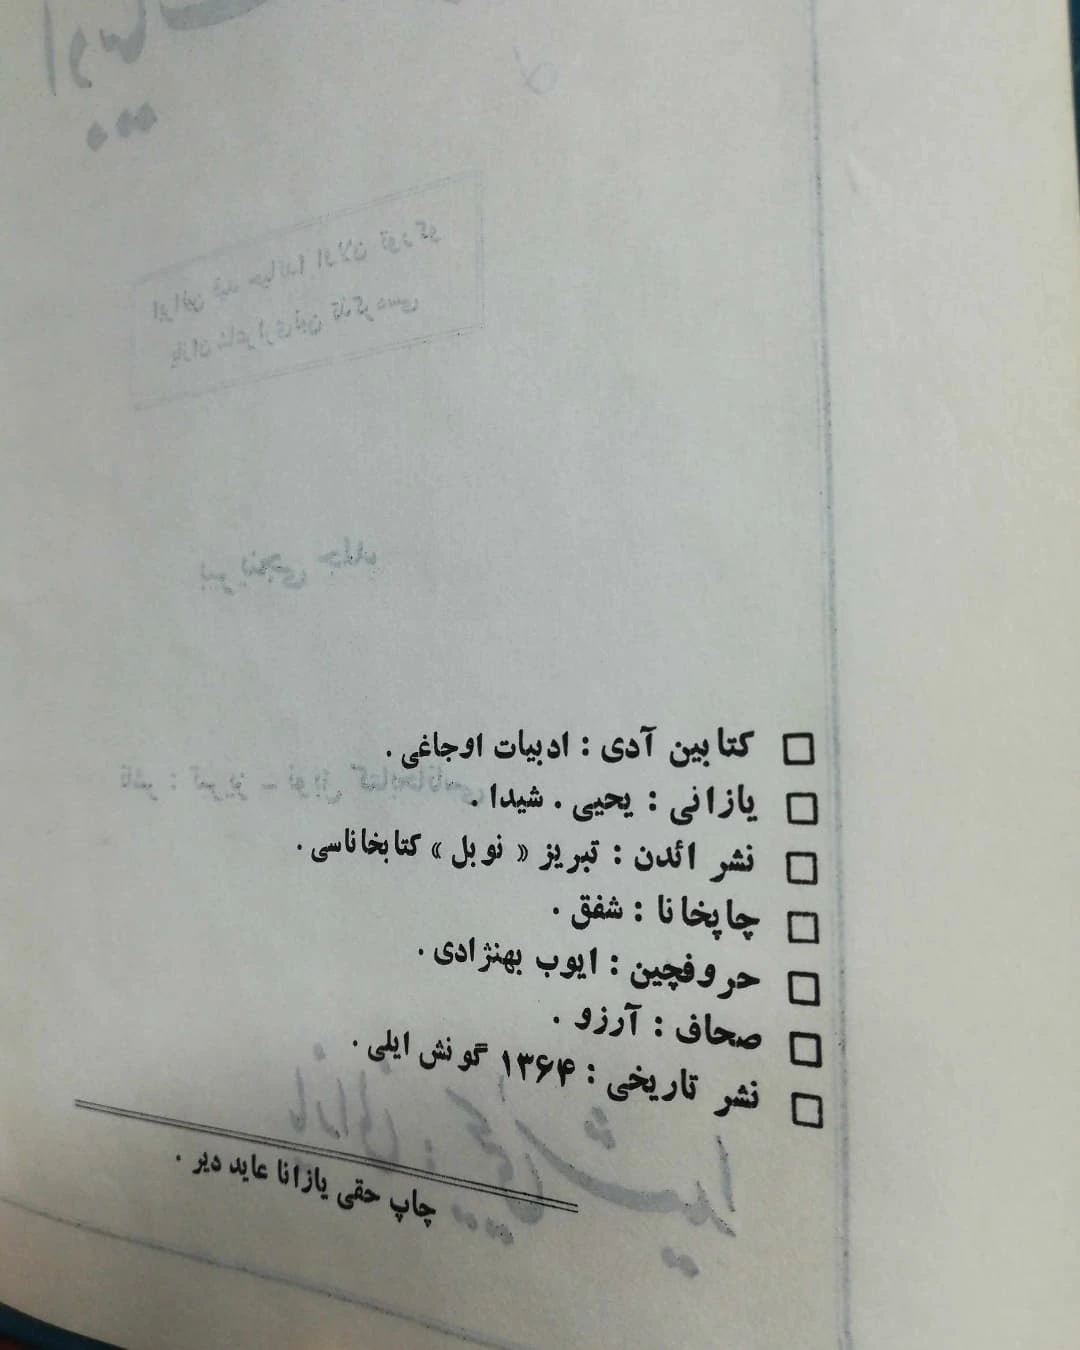 کتابین آدی : ادبیات اوجاغی .
یازانی : یحیی . شیدا .
نشر ائدن : تبریز « نوبل » کتابخاناسی .
چاپخانا : شفق .
حروفچین : ایوب بهنژادی .
صحاف : آرزو .
نشر تاریخی : ۱۳۶۴ گونش ایلی .
چاپ حقی یازانا عاید دیر .